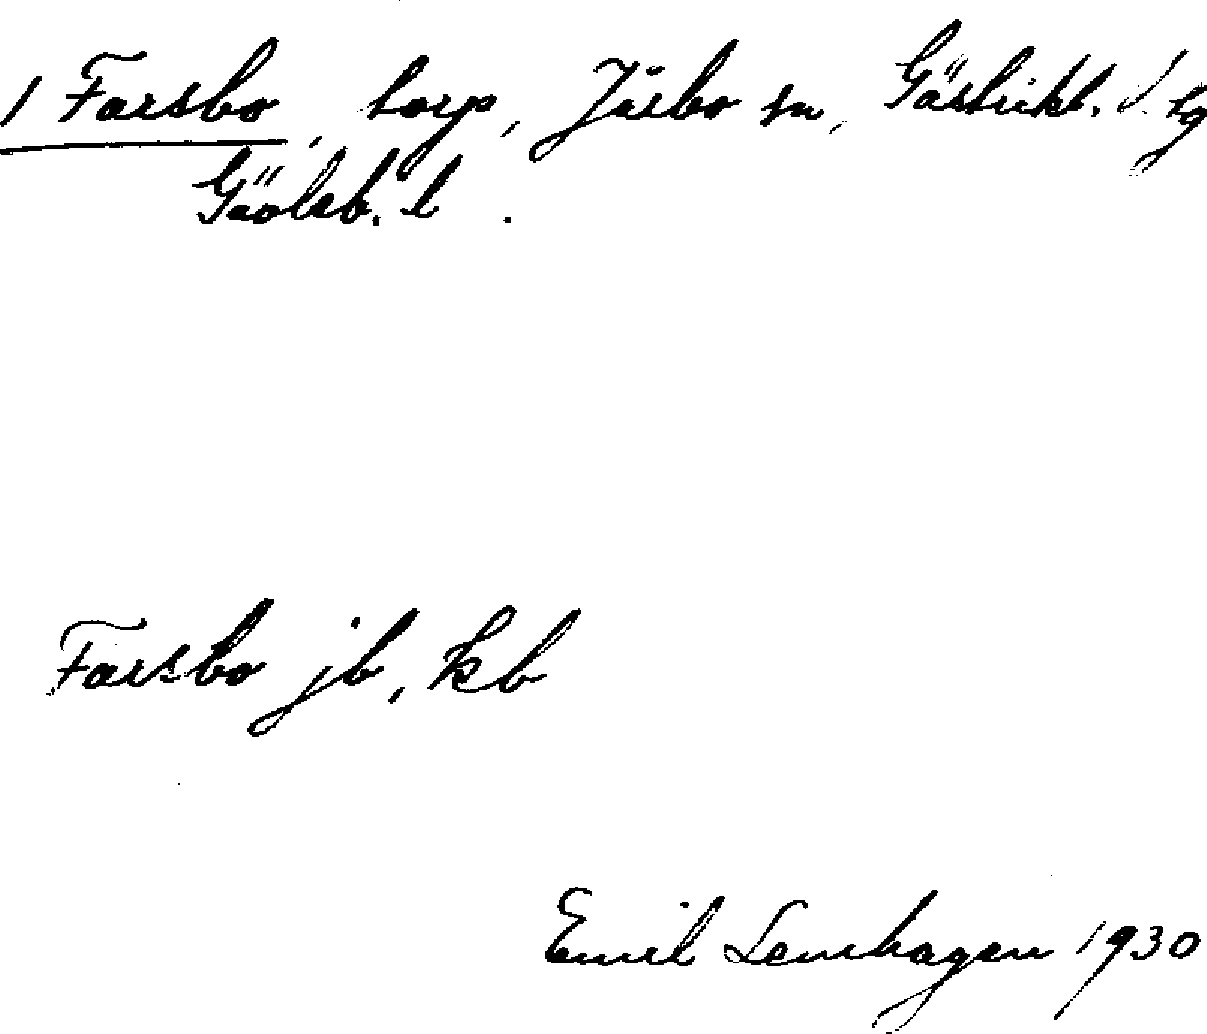 1 Farsbo, torp, Järbo sn, Gästrikl. ö. tg
Gävleb. l.
Farsbo jb, kb
Emil Lenhagen 1930